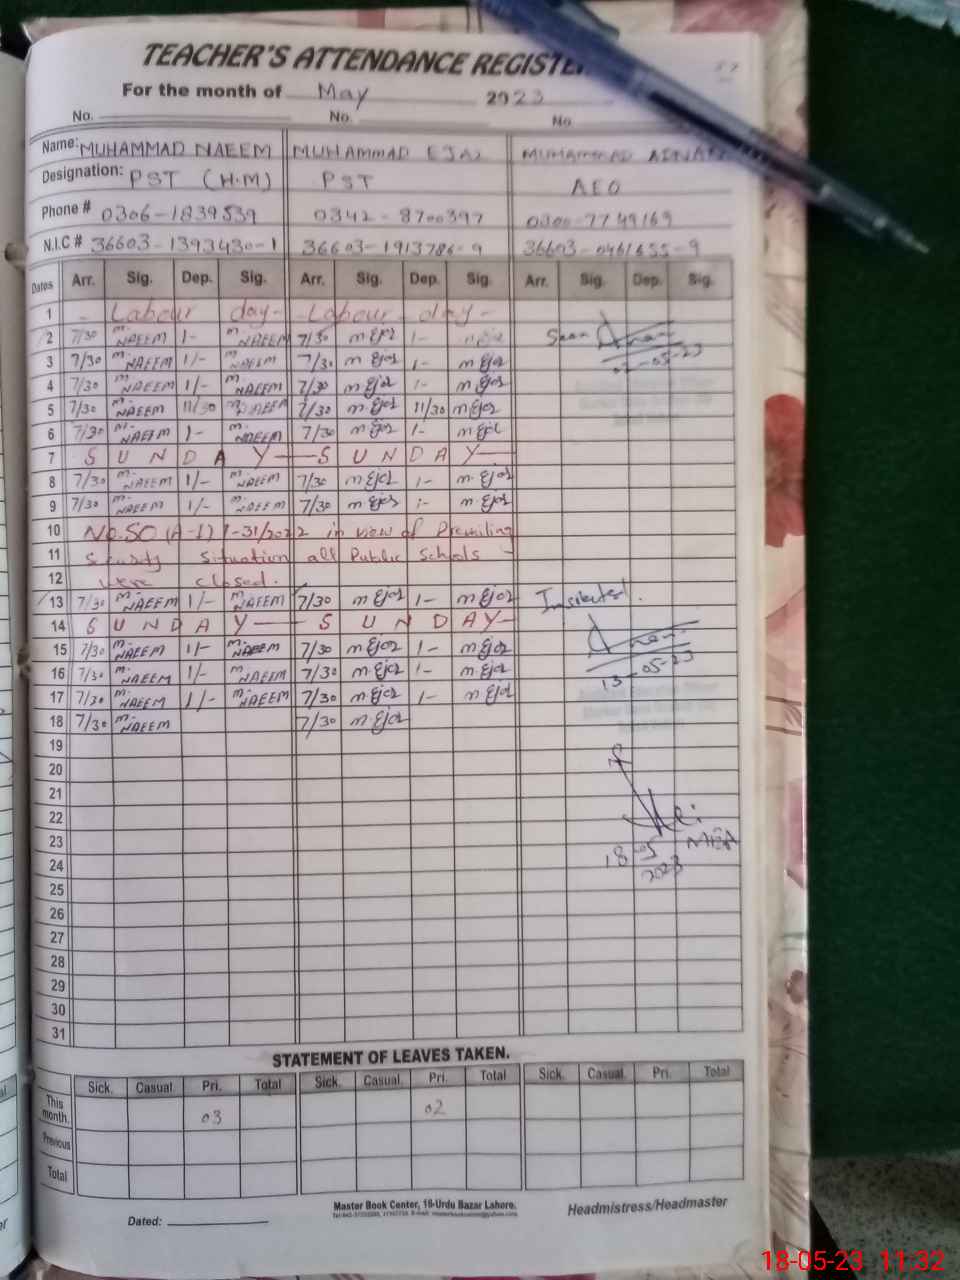 TEACHER'S ATTENDANCE REGISTE
For the month of May 2023
No. No. No
Name: MUHAMMAD NAEEM MUHAMMAD EJAZ MUHAMMAD ADNAN
Designation: PST (H.M) PST AEO
Phone # 0306-1839539 0342-8700397 0300-7749169
N.I.C # 36603-1393430-1 36603-1913786-9 36603-0461655-9
Dates Arr. Sig. Dep. Sig. Arr. Sig. Dep. Sig. Arr. Sig. Dep. Sig.
1 - Labour day - - Labour day -
2 7/30 M. NAEEM 1- M. NAEEM 7/30 m Ejaz 1- m Ejaz Seen
3 7/30 M. NAEEM 1/- M. NAEEM 7/30 m Ejaz 1- m Ejaz 02-05-23
4 7/30 M NAEEM 1/- M. NAEEM 7/30 m Ejaz 1- m Ejaz
5 7/30 M. NAEEM 11/30 M. NAEEM 7/30 m Ejaz 11/30 m Ejaz
6 7/30 M. NAEEM 1- M. NAEEM 7/30 m Ejaz 1- m Ejaz
7 S U N D A Y — S U N D A Y —
8 7/30 M. NAEEM 1/- M. NAEEM 7/30 m Ejaz 1- m. Ejaz
9 7/30 M. NAEEM 1/- M. NAEEM 7/30 m Ejaz 1- m. Ejaz
10 No.SO (A-I) 1-31/2022 in view of Prevailing
11 Security Situation all Public Schools
12 were closed.
13 7/30 M. NAEEM 1/- M. NAEEM 7/30 m Ejaz 1- m Ejaz
14 S U N D A Y — S U N D A Y —
15 7/30 M. NAEEM 1/- M. NAEEM 7/30 m Ejaz 1- m Ejaz
16 7/30 M. NAEEM 1/- M. NAEEM 7/30 m Ejaz 1- m Ejaz 13-05-23
17 7/30 M. NAEEM 1/- M. NAEEM 7/30 m Ejaz 1- m Ejaz
18 7/30 M. NAEEM 7/30 m Ejaz
19
20
21
22
23 MEA
24 18-05
2023
25
26
27
28
29
30
31
STATEMENT OF LEAVES TAKEN.
Sick. Casual. Pri. Total Sick. Casual. Pri. Total Sick. Casual. Pri. Total
This month. 03 02
Previous
Total
Master Book Center, 16-Urdu Bazar Lahore.
Dated: Headmistress/Headmaster
18-05-23 11:32